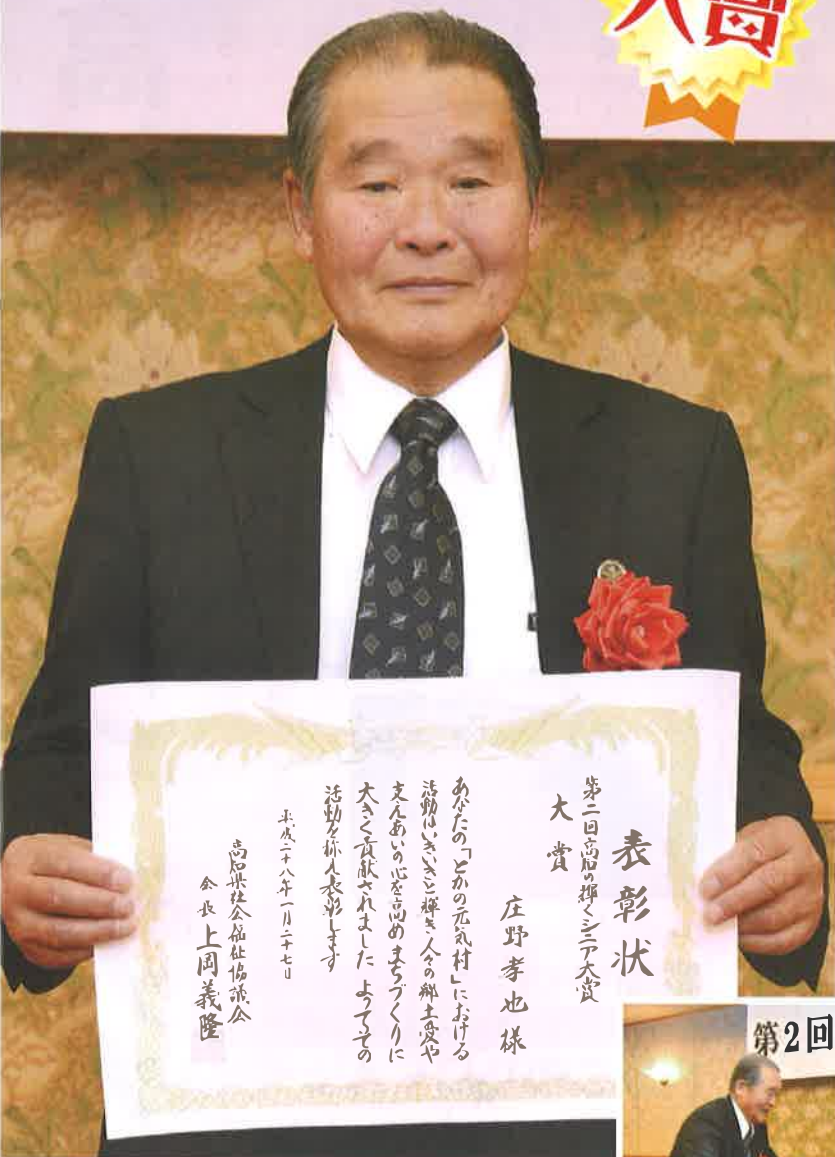 大賞
表彰状
第二回高知の輝くシニア大賞
大賞
庄野孝也様
あなたの「とかの元気村」における
活動はいきいきと輝き人々の郷土愛や
支えあいの心を高めまちづくりに
大きく貢献されました よってその
活動を称え表彰します
平成二十八年一月二十七日
高知県社会福祉協議会
会長 上岡義隆
第2回